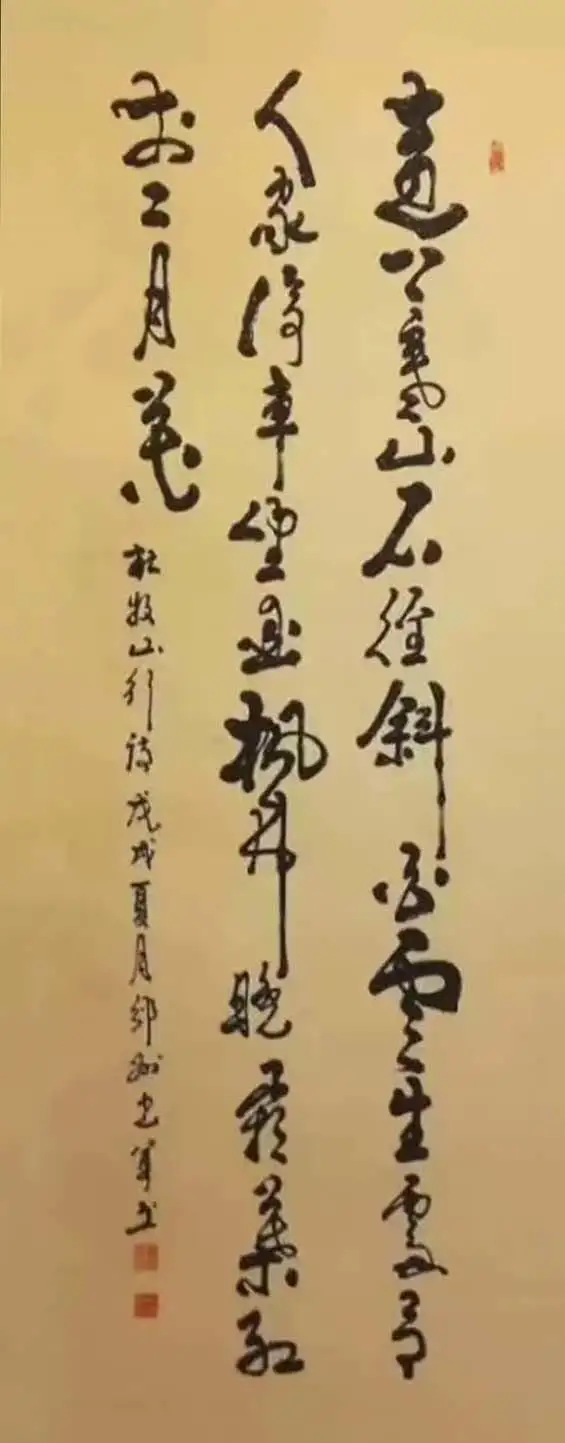 遠上寒山石徑斜白雲生處有
人家停車坐愛楓林晚霜葉紅
於二月花
杜牧山行詩戊戌夏月鄭州軍书